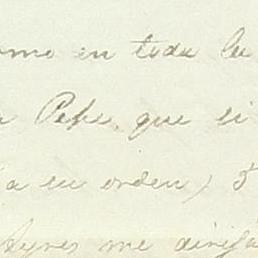 omo en toda la
a Pepe que si
a en orden) 5
Ayres me dirija